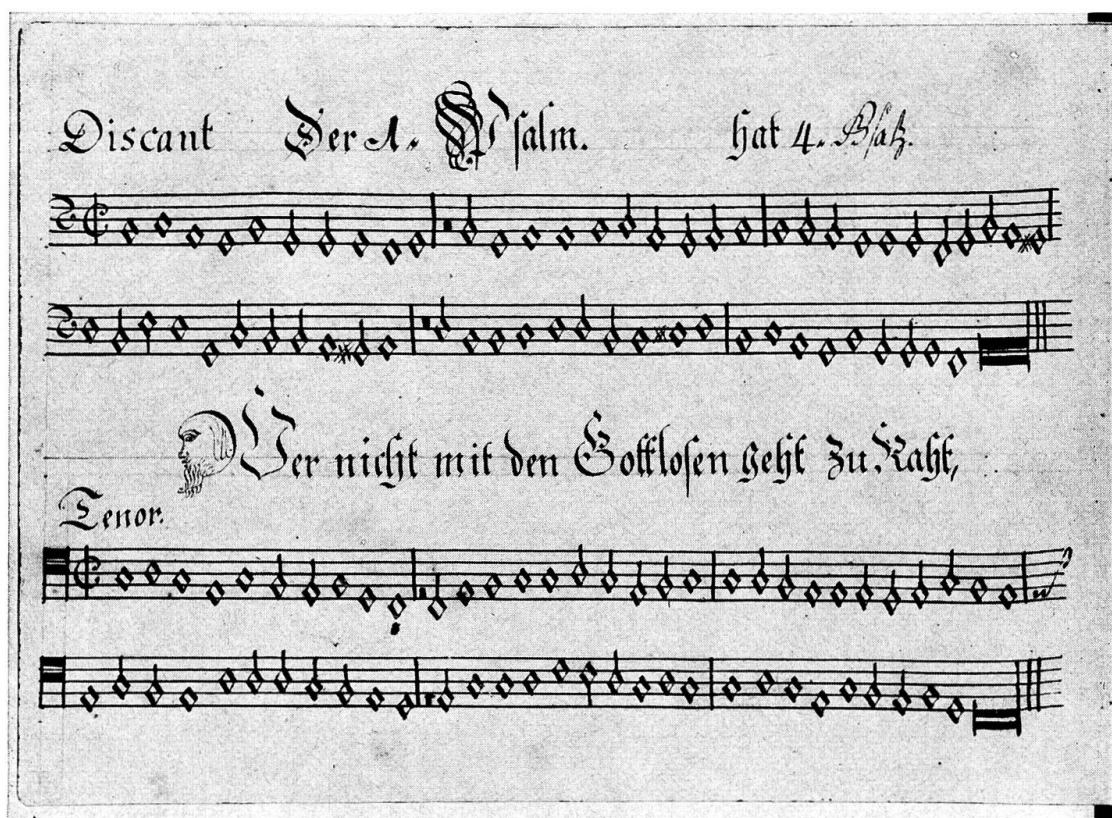 Discant Der 1. Psalm. hat 4. Gsatz.
Wer nicht mit den Gottlosen geht zu Raht,
Tenor.